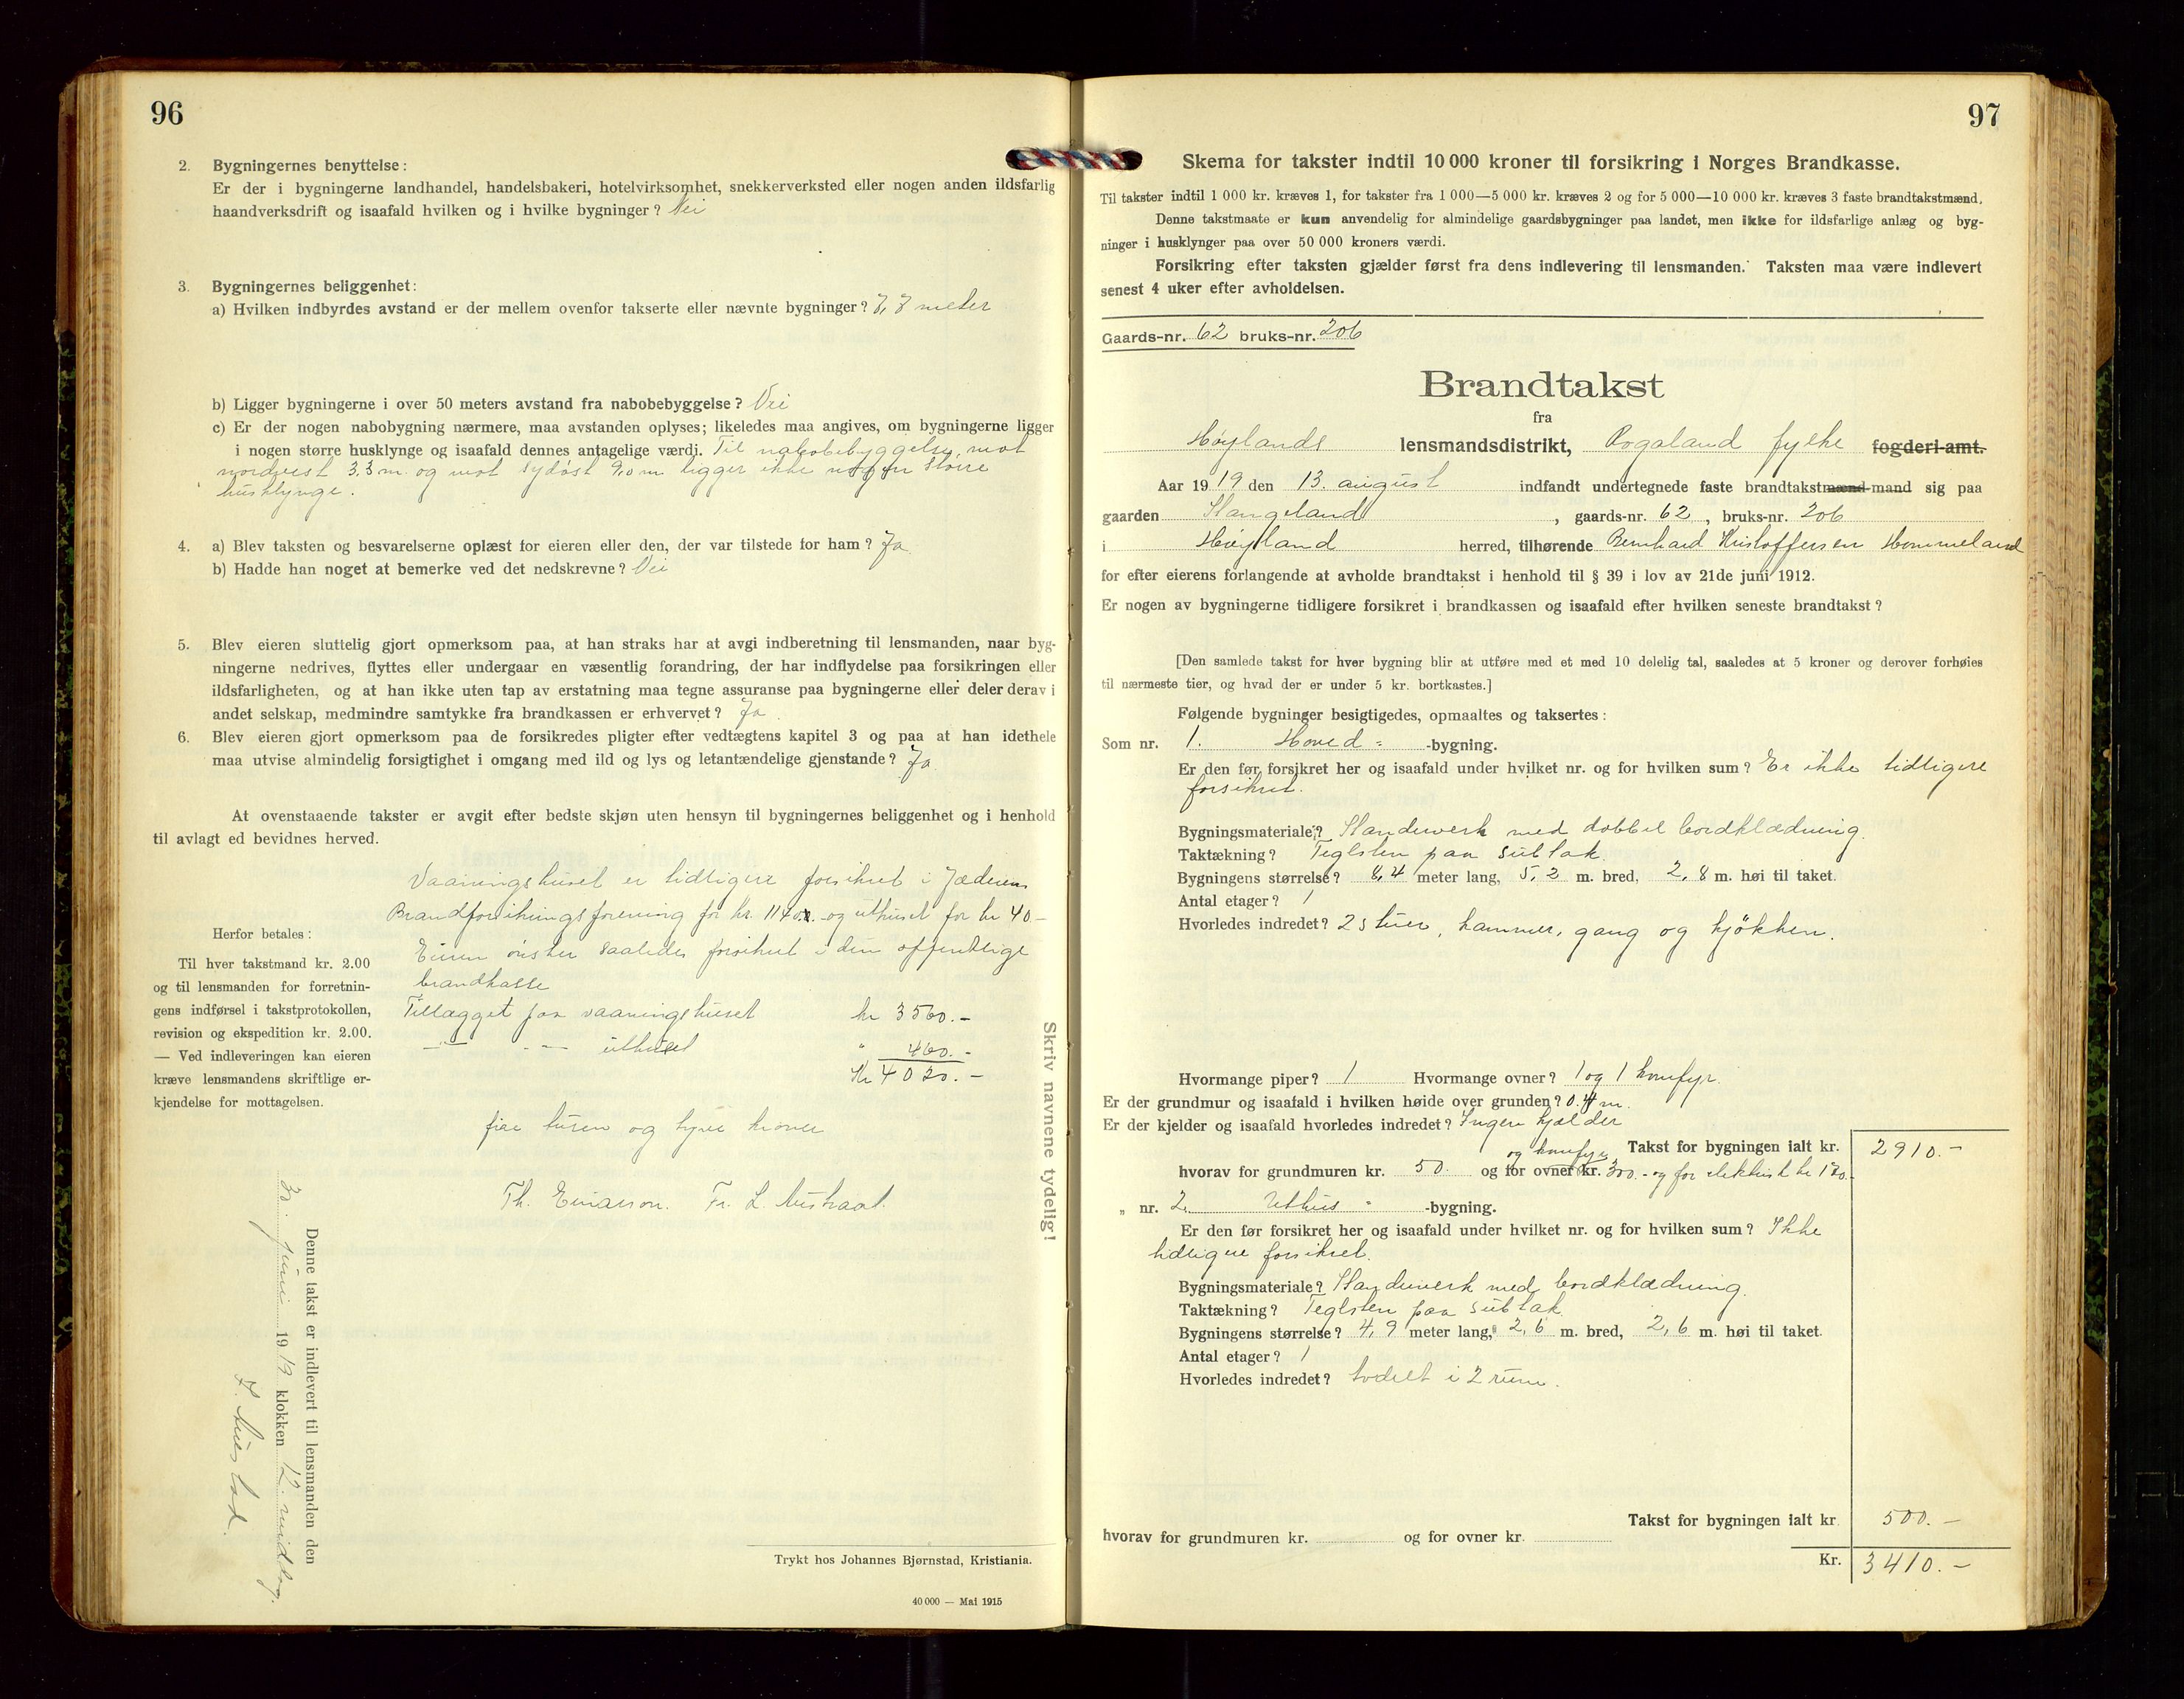 96
2. Bygningernes benyttelse:
Er der i bygningerne landhandel, handelsbakeri, hotelvirksomhet, snekkerverksted eller nogen anden ildsfarlig
haandverksdrift og isaafald hvilken og i hvilke bygninger? Nei
3. Bygningernes beliggenhet:
a) Hvilken indbyrdes avstand er der mellem ovenfor takserte eller nævnte bygninger? 7,7 meter
b) Ligger bygningerne i over 50 meters avstand fra nabobebyggelse? Nei
c) Er der nogen nabobygning nærmere, maa avstanden oplyses; likeledes maa angives, om bygningerne ligger
i nogen større husklynge og isaafald dennes antagelige værdi. Til nabobebyggelse, mot
nordvest 3.3 m og mot sydöst 9,0 m ligger ikke nogen större
husklynge.
4. a) Blev taksten og besvarelserne oplæst for eieren eller den, der var tilstede for ham? Ja
b) Hadde han noget at bemerke ved det nedskrevne? Nei
5. Blev eieren sluttelig gjort opmerksom paa, at han straks har at avgi indberetning til lensmanden, naar byg-
ningerne nedrives, flyttes eller undergaar en væsentlig forandring, der har indflydelse paa forsikringen eller
ildsfarligheten, og at han ikke uten tap av erstatning maa tegne assuranse paa bygningerne eller deler derav i
andet selskap, medmindre samtykke fra brandkassen er erhvervet? Ja.
6. Blev eieren gjort opmerksom paa de forsikredes pligter efter vedtægtens kapitel 3 og paa at han idethele
maa utvise almindelig forsigtighet i omgang med ild og lys og letantændelige gjenstande? Ja.
At ovenstaaende takster er avgit efter bedste skjøn uten hensyn til bygningernes beliggenhet og i henhold
til avlagt ed bevidnes herved.
Vaaningshuset er tidligere forsikret i Jæderens
Brandforsikringsforening for kr. 1140.- og uthuset for kr 40.-
Eieren önsker saaledes forsikret i den offentlige
brandkasse
Tillægget paa vaaningshuset kr 3560.-
— " — uthuset " 460.-
Kr 4020.-
fire tusen og tyve kroner
Th. Einarson. Fr. L. Austraat.
Herfor betales:
Til hver takstmand kr. 2.00
og til lensmanden for forretnin-
gens indførsel i takstprotokollen,
revision og ekspedition kr. 2.00.
— Ved indleveringen kan eieren
kræve lensmandens skriftlige er-
kjendelse for mottagelsen.
Skriv navnene tydelig!
Denne takst er indlevert til lensmanden den
juni 1919 klokken 12 middag.
Trykt hos Johannes Bjørnstad, Kristiania.
40 000 — Mai 1915
97
Skema for takster indtil 10 000 kroner til forsikring i Norges Brandkasse.
Til takster indtil 1 000 kr. kræves 1, for takster fra 1 000—5 000 kr. kræves 2 og for 5 000—10 000 kr. kræves 3 faste brandtakstmænd.
Denne takstmaate er kun anvendelig for almindelige gaardsbygninger paa landet, men ikke for ildsfarlige anlæg og byg-
ninger i husklynger paa over 50 000 kroners værdi.
Forsikring efter taksten gjælder først fra dens indlevering til lensmanden. Taksten maa være indlevert
senest 4 uker efter avholdelsen.
Gaards-nr. 62 bruks-nr. 206
Brandtakst
fra
Höylands lensmandsdistrikt, Rogaland fylke fogderi-amt.
Aar 1919 den 13. august indfandt undertegnede faste brandtakstmænd-mand sig paa
gaarden Stangeland, gaards-nr. 62, bruks-nr. 206
i Höyland herred, tilhørende Bernhard Kristoffersen Hommeland
for efter eierens forlangende at avholde brandtakst i henhold til § 39 i lov av 21de juni 1912.
Er nogen av bygningerne tidligere forsikret i brandkassen og isaafald efter hvilken seneste brandtakst?
[Den samlede takst for hver bygning blir at utføre med et med 10 delelig tal, saaledes at 5 kroner og derover forhøies
til nærmeste tier, og hvad der er under 5 kr. bortkastes.]
Følgende bygninger besigtigedes, opmaaltes og taksertes:
Som nr. 1. Hoved = -bygning.
Er den før forsikret her og isaafald under hvilket nr. og for hvilken sum? Er ikke tidligere
forsikret.
Bygningsmateriale? Standerverk med dobbel bordklædning.
Taktækning? Teglsten paa sutak.
Bygningens størrelse? 8,4 meter lang, 5,2 m. bred, 2,8 m. høi til taket.
Antal etager? 1
Hvorledes indredet? 2 stuer, kammer, gang og kjökken.
Hvormange piper? 1 Hvormange ovner? 1 og 1 komfyr.
Er der grundmur og isaafald i hvilken høide over grunden? 0.4 m.
Er der kjelder og isaafald hvorledes indredet? Ingen kjælder
Takst for bygningen ialt kr. 2910.-
hvorav for grundmuren kr. 50. og for ovner og komfyr kr. 300.- og for elektrisk kr
„ nr. 2. Uthus = -bygning.
Er den før forsikret her og isaafald under hvilket nr. og for hvilken sum? Ikke
tidligere forsikret.
Bygningsmateriale? Standerverk med bordklædning.
Taktækning? Teglsten paa sutak.
Bygningens størrelse? 4,9 meter lang, 2,6 m. bred, 2,6 m. høi til taket.
Antal etager? 1
Hvorledes indredet? todelt i 2 rum.
Takst for bygningen ialt kr. 500.-
hvorav for grundmuren kr. og for ovner kr.
Kr. 3410.-